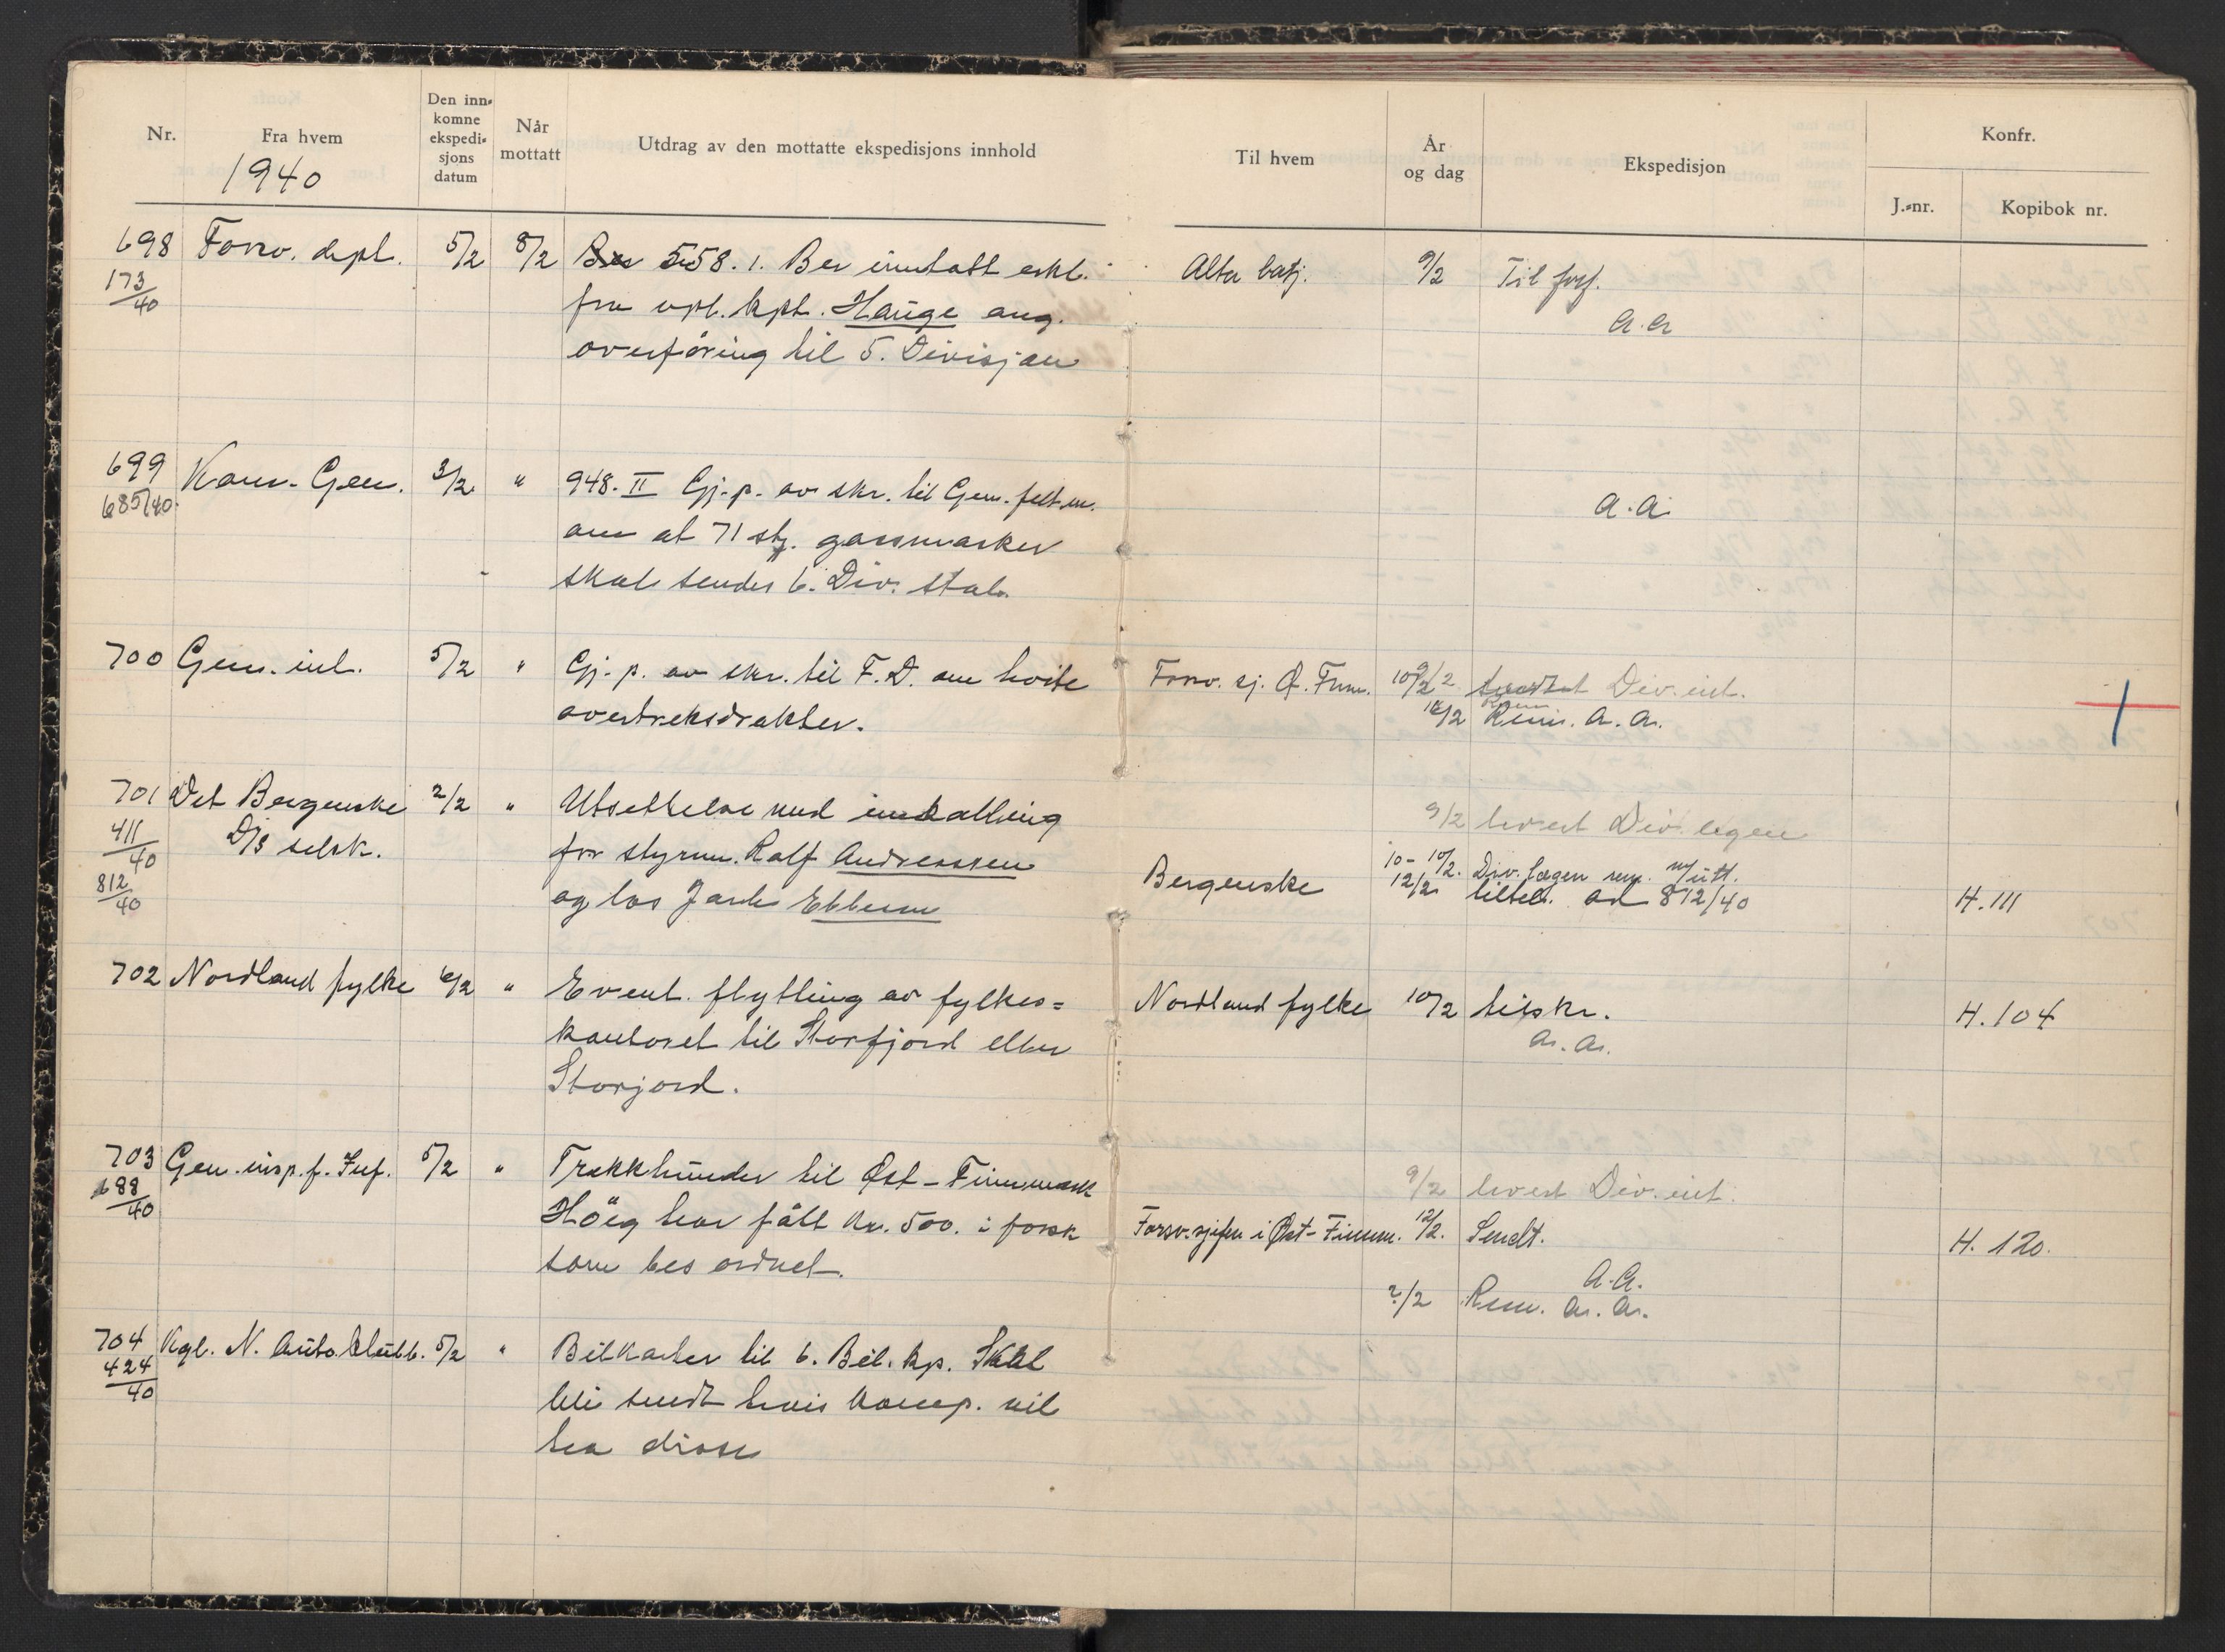 Nr.
Fra hvem
1940
Den inn-
komne
ekspedi-
sjons
datum
Når
mottatt
Utdrag av den mottatte ekspedisjons innhold
Til hvem
År
og dag
Ekspedisjon
Konfr.
J.-nr.
Kopibok nr.
698 Forsv. dept. 5/2 8/2 558. 1. Ber inntatt erkl. Alta batj. 9/2 Til forf.
173/40 fra vpl. kpt. Hauge ang. a.a
overføring til 5. Divisjon
699 Kom. Gen. 3/2 " 948. II Gj.p. av skr. til Gen. felt.m.
685/40. om at 71 stk. gassmasker a.a.
skal sendes 6. Div. stab.
700 Gen. int. 5/2 " Gj.p. av skr. til F.D. om hvite Forsv. sj. Ø. Finm. 10/2 Div. int.
overtreksdrakter. 16/2 Rem. a.a.
701 Det Bergenske 2/2 " Utsettelse med innkalling 9/2 levert Div. legen
411/40 D/s selsk. for styrm. Ralf Andreassen 10-10/2. Div. legen m/utt.
812/40 og los Jarle Bergenske 12/2 ad 812/40 H. 111
702 Nordland fylke 6/2 " Event. flytting av fylkes= Nordland fylke 10/2 tilskr. H. 104
kontoret til Storfjord eller a.a.
Storjord.
703 Gen. insp. f. Inf. 5/2 " Trekkhunder til Øst-Finnmark 9/2 levert Div. int.
688/40 Höeg har fått kr. 500. i forsk Forsv. sjefen i Øst-Finnm. 12/2. Sendt. H. 120.
som bes ordnet. A.A.
2/2 Rem. a.a.
704 Kgl. N. Autoklubb. 5/2 " Bilkarter til 6. Bil. kp. Skal
424/40 bli sendt hvis komp. vil
ha disse